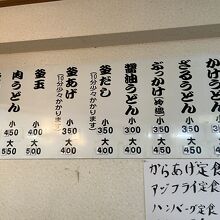 かけうどん
小 350
大 400
ざるうどん
小 350
大 400
ぶっかけ(冷・温)
小 350
大 400
醤油うどん
小 350
大 400
釜だし
(10分少々かかります)
小 350
大 400
釜あげ
(10分少々かかります)
小 350
大 400
釜玉
小 400
大 500
肉うどん
小 450
大 550
からあげ定食
アジフライ定食
ハンバーグ定食